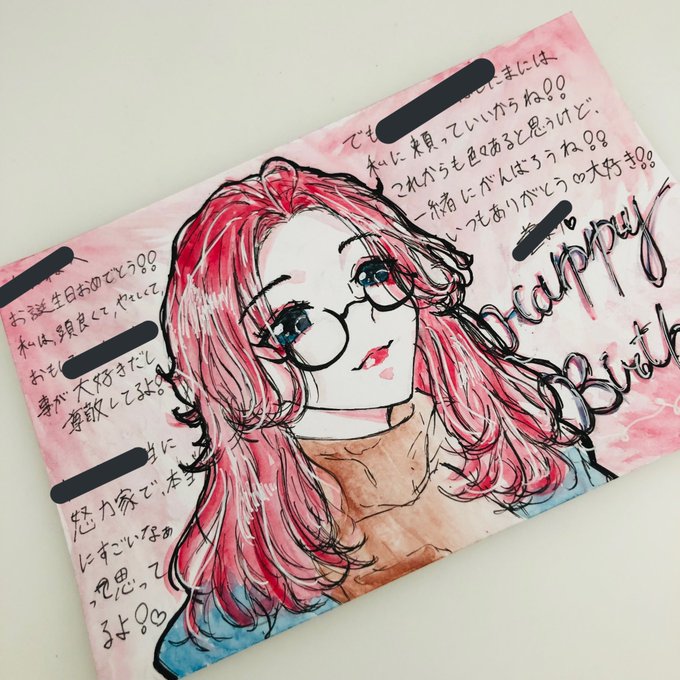 へ
お誕生日おめでとう!!
私は、頭良くて、やさしくて、
おもし
事が大好きだし
尊敬してるよ!
当に
怒力家で、本当
にすごいなぁ
って思って
るよ!♡
でも たまには
私に頼っていいからね!!
これからも色々あると思うけど、
一緒にがんばろうね!!
いつもありがとう♡大好き!!
Happy
Birth